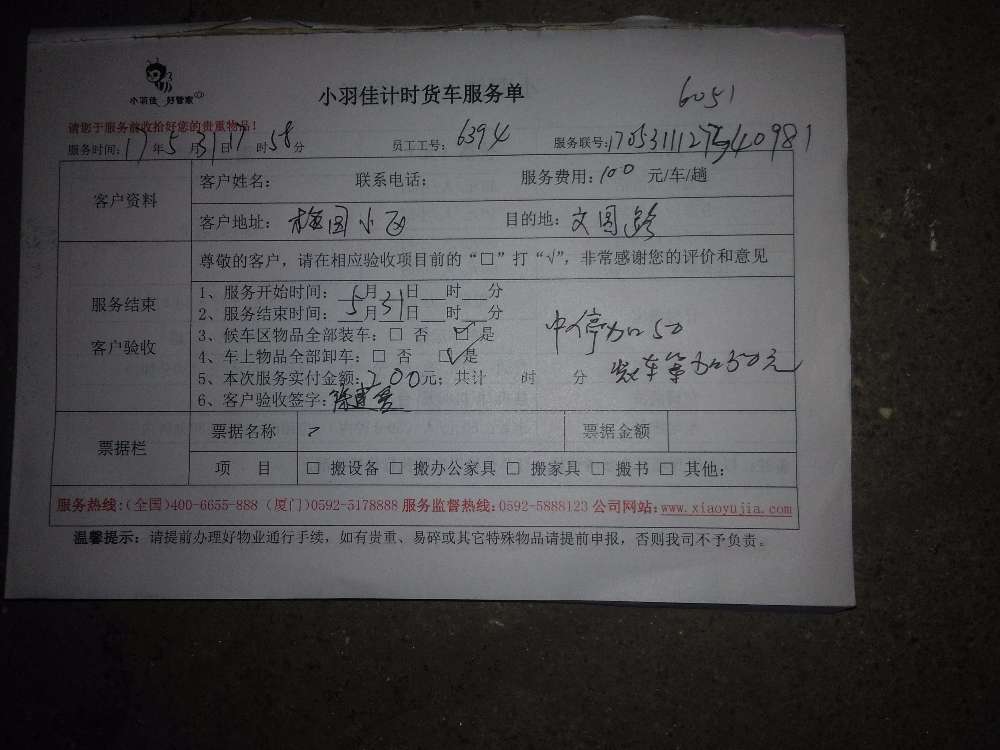 小羽佳 好管家
小羽佳计时货车服务单
6051
请您于服务前收拾好您的贵重物品！
服务时间：17年5月31日17时58分 员工工号：6394 服务联号：
客户资料
客户姓名： 联系电话： 服务费用：100 元/车/趟
客户地址：梅园小区 目的地：文园路
服务结束
客户验收
尊敬的客户，请在相应验收项目前的“□”打“√”，非常感谢您的评价和意见
1、服务开始时间：5月31日___时___分
2、服务结束时间：___月___日___时___分
3、候车区物品全部装车：□ 否 ☑ 是
4、车上物品全部卸车：□ 否 ☑ 是
5、本次服务实付金额：200元；共计 时 分
6、客户验收签字：
中停加50
等加50元
票据栏
票据名称 票据金额
项 目 □ 搬设备 □ 搬办公家具 □ 搬家具 □ 搬书 □ 其他：
服务热线：(全国)400-6655-888 (厦门)0592-5178888 服务监督热线：0592-5888123 公司网站：www.xiaoyujia.com
温馨提示：请提前办理好物业通行手续，如有贵重、易碎或其它特殊物品请提前申报，否则我司不予负责。